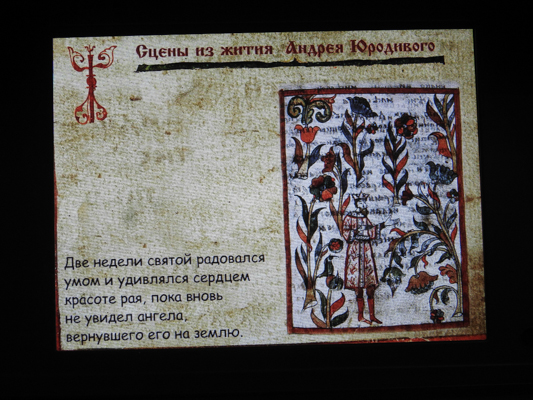 Сцены из жития Андрея Юродивого
Две недели святой радовался
умом и удивлялся сердцем
красоте рая, пока вновь
не увидел ангела,
вернувшего его на землю.